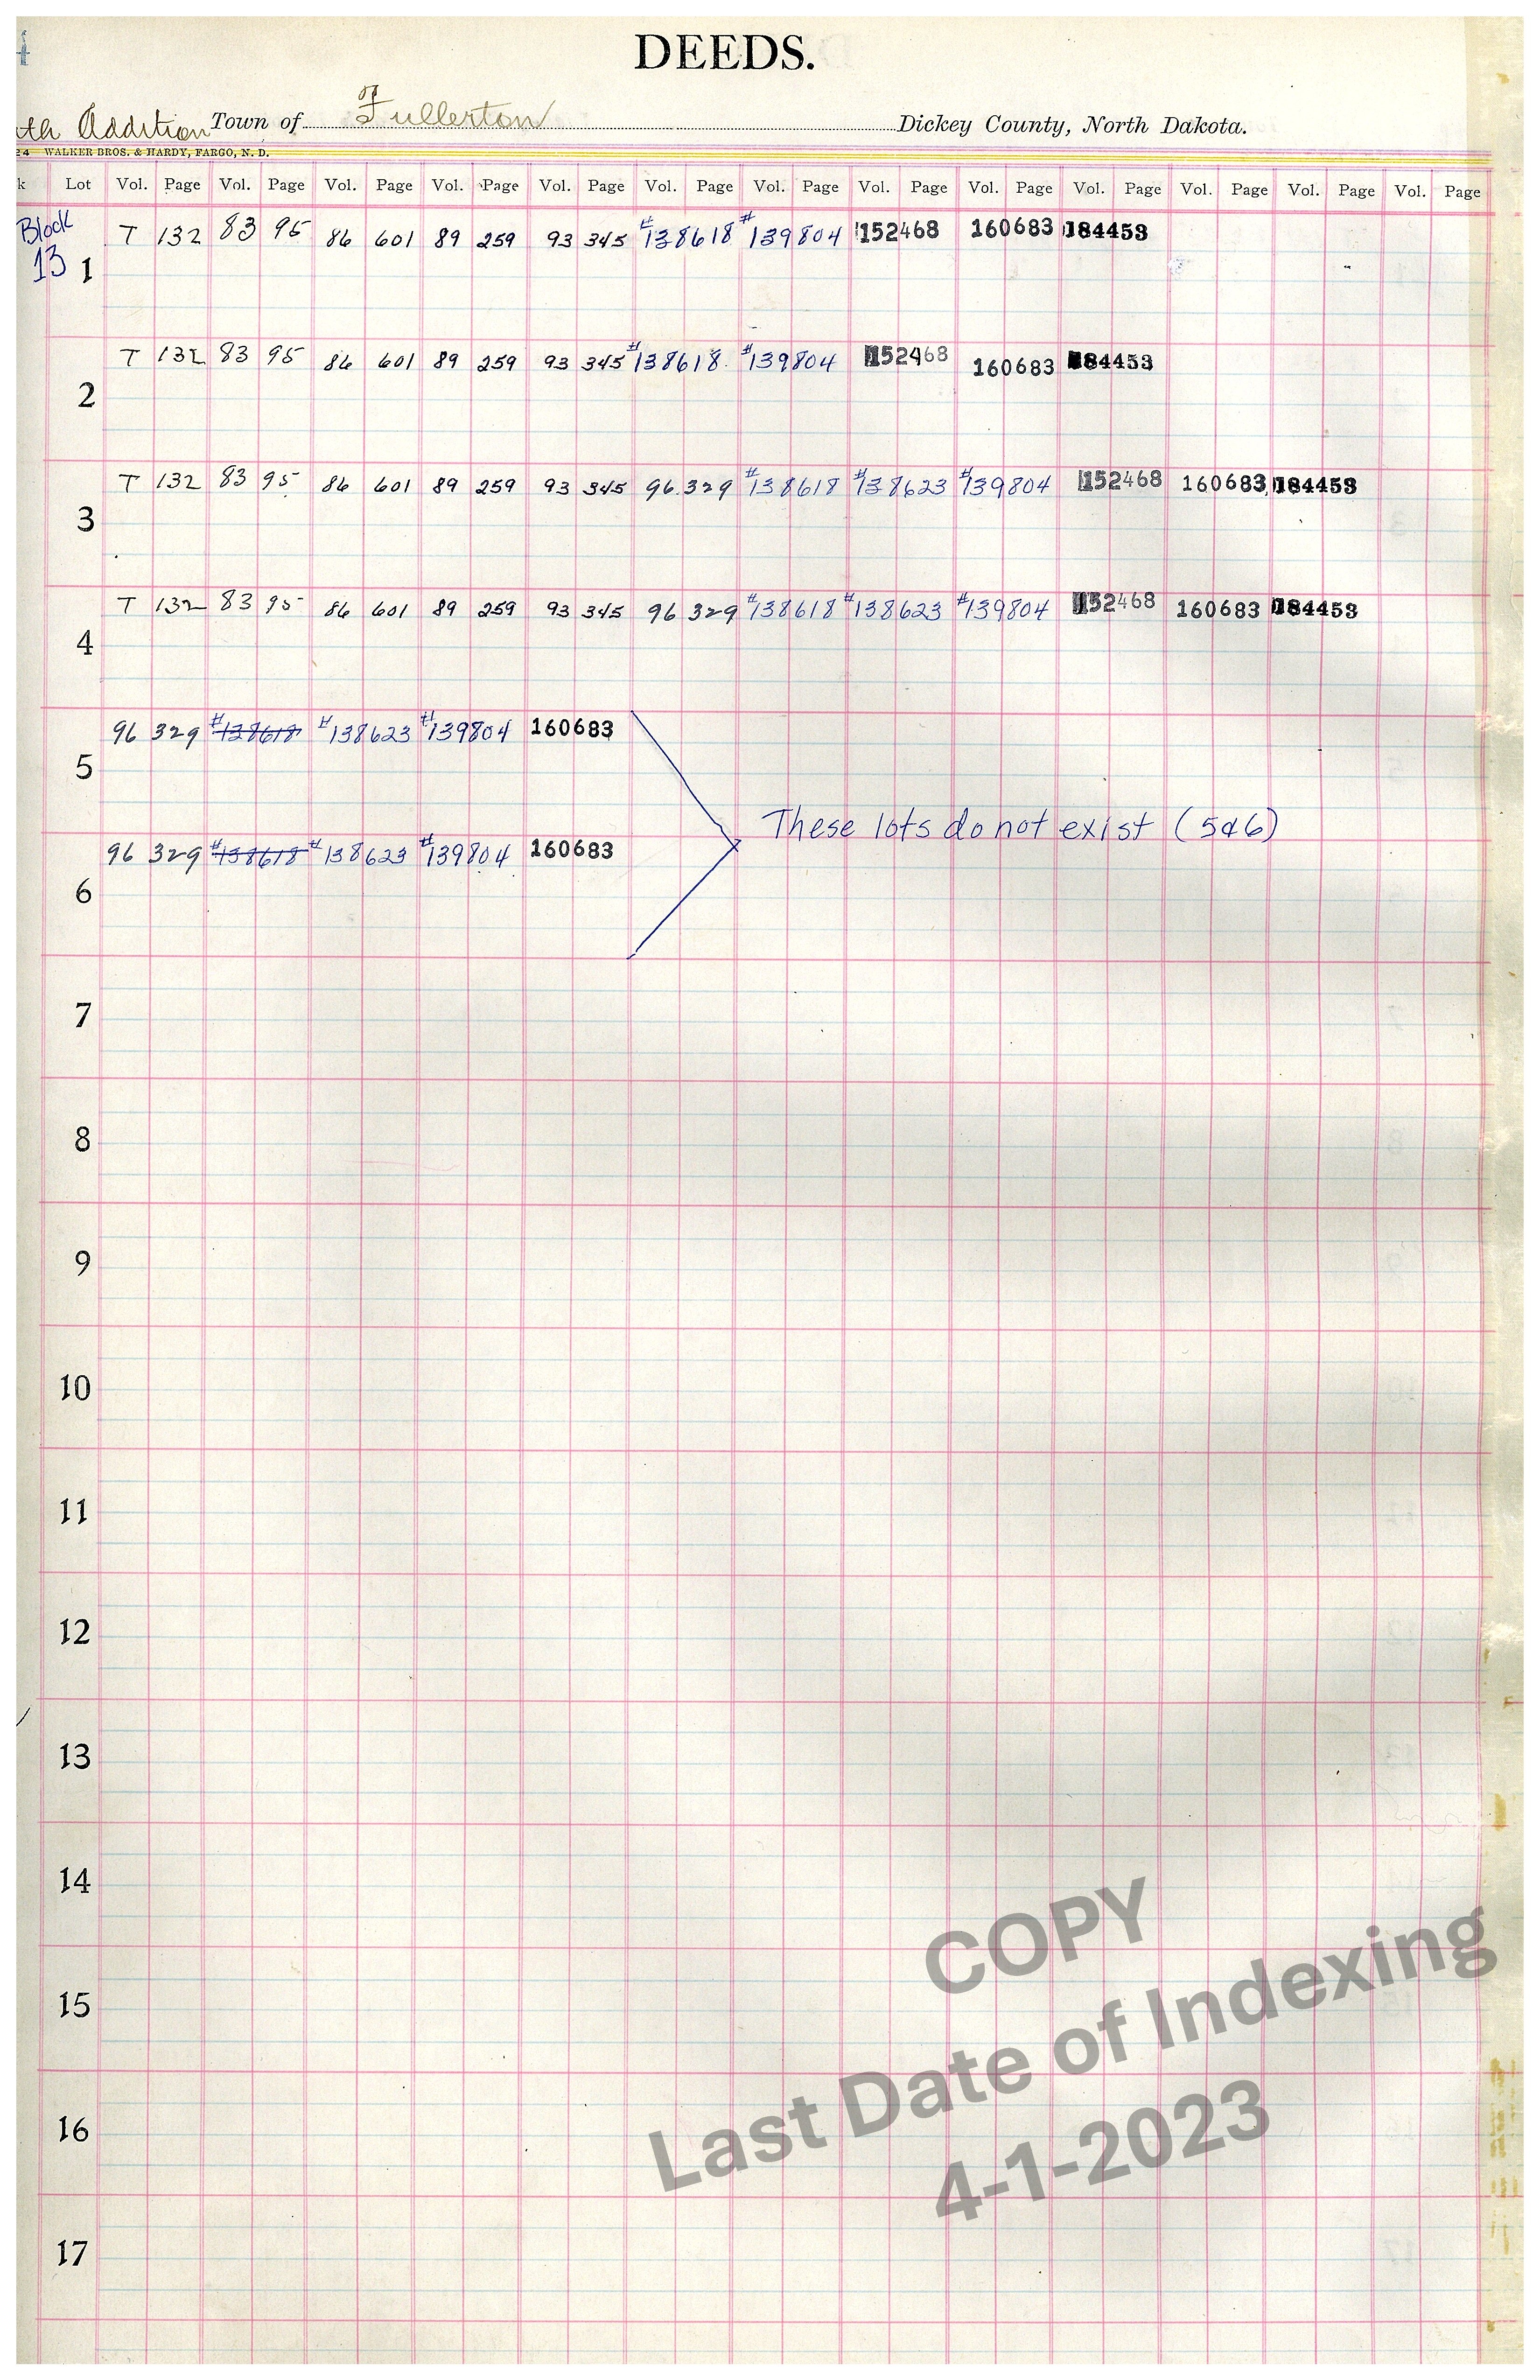 4
DEEDS.
th Addition Town of of Fullerton Dickey County, North Dakota.
24 WALKER BROS. & HARDY, FARGO, N. D.
k Lot Vol. Page Vol. Page Vol. Page Vol. Page Vol. Page Vol. Page Vol. Page Vol. Page Vol. Page Vol. Page Vol. Page Vol. Page Vol. Page
Block T 132 83 95 86 601 89 259 93 345 #138618 #139804 152468 160683 184453
13 1
T 132 83 95 86 601 89 259 93 345 #138618 #139804 152468 160683 184453
2
T 132 83 95 86 601 89 259 93 345 96 329 #138618 #138623 #139804 152468 160683 184453
3
T 132 83 95 86 601 89 259 93 345 96 329 #138618 #138623 #139804 152468 160683 184453
4
96 329 #138618 #138623 #139804 160683
5
These lots do not exist (5&6)
96 329 #138618 #138623 #139804 160683
6
7
8
9
10
11
12
13
14
15
16
17
COPY
Last Date of Indexing
4-1-2023